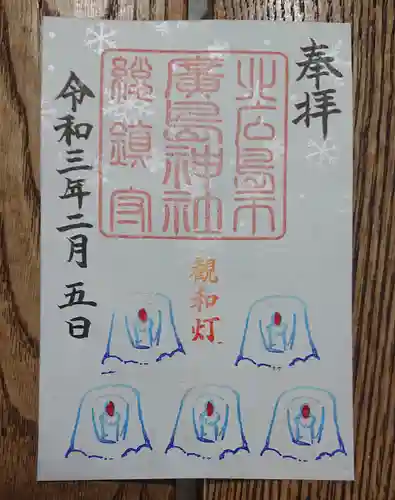 奉拝
北広島市
廣島神社
総鎮守
観和灯
令和三年二月五日